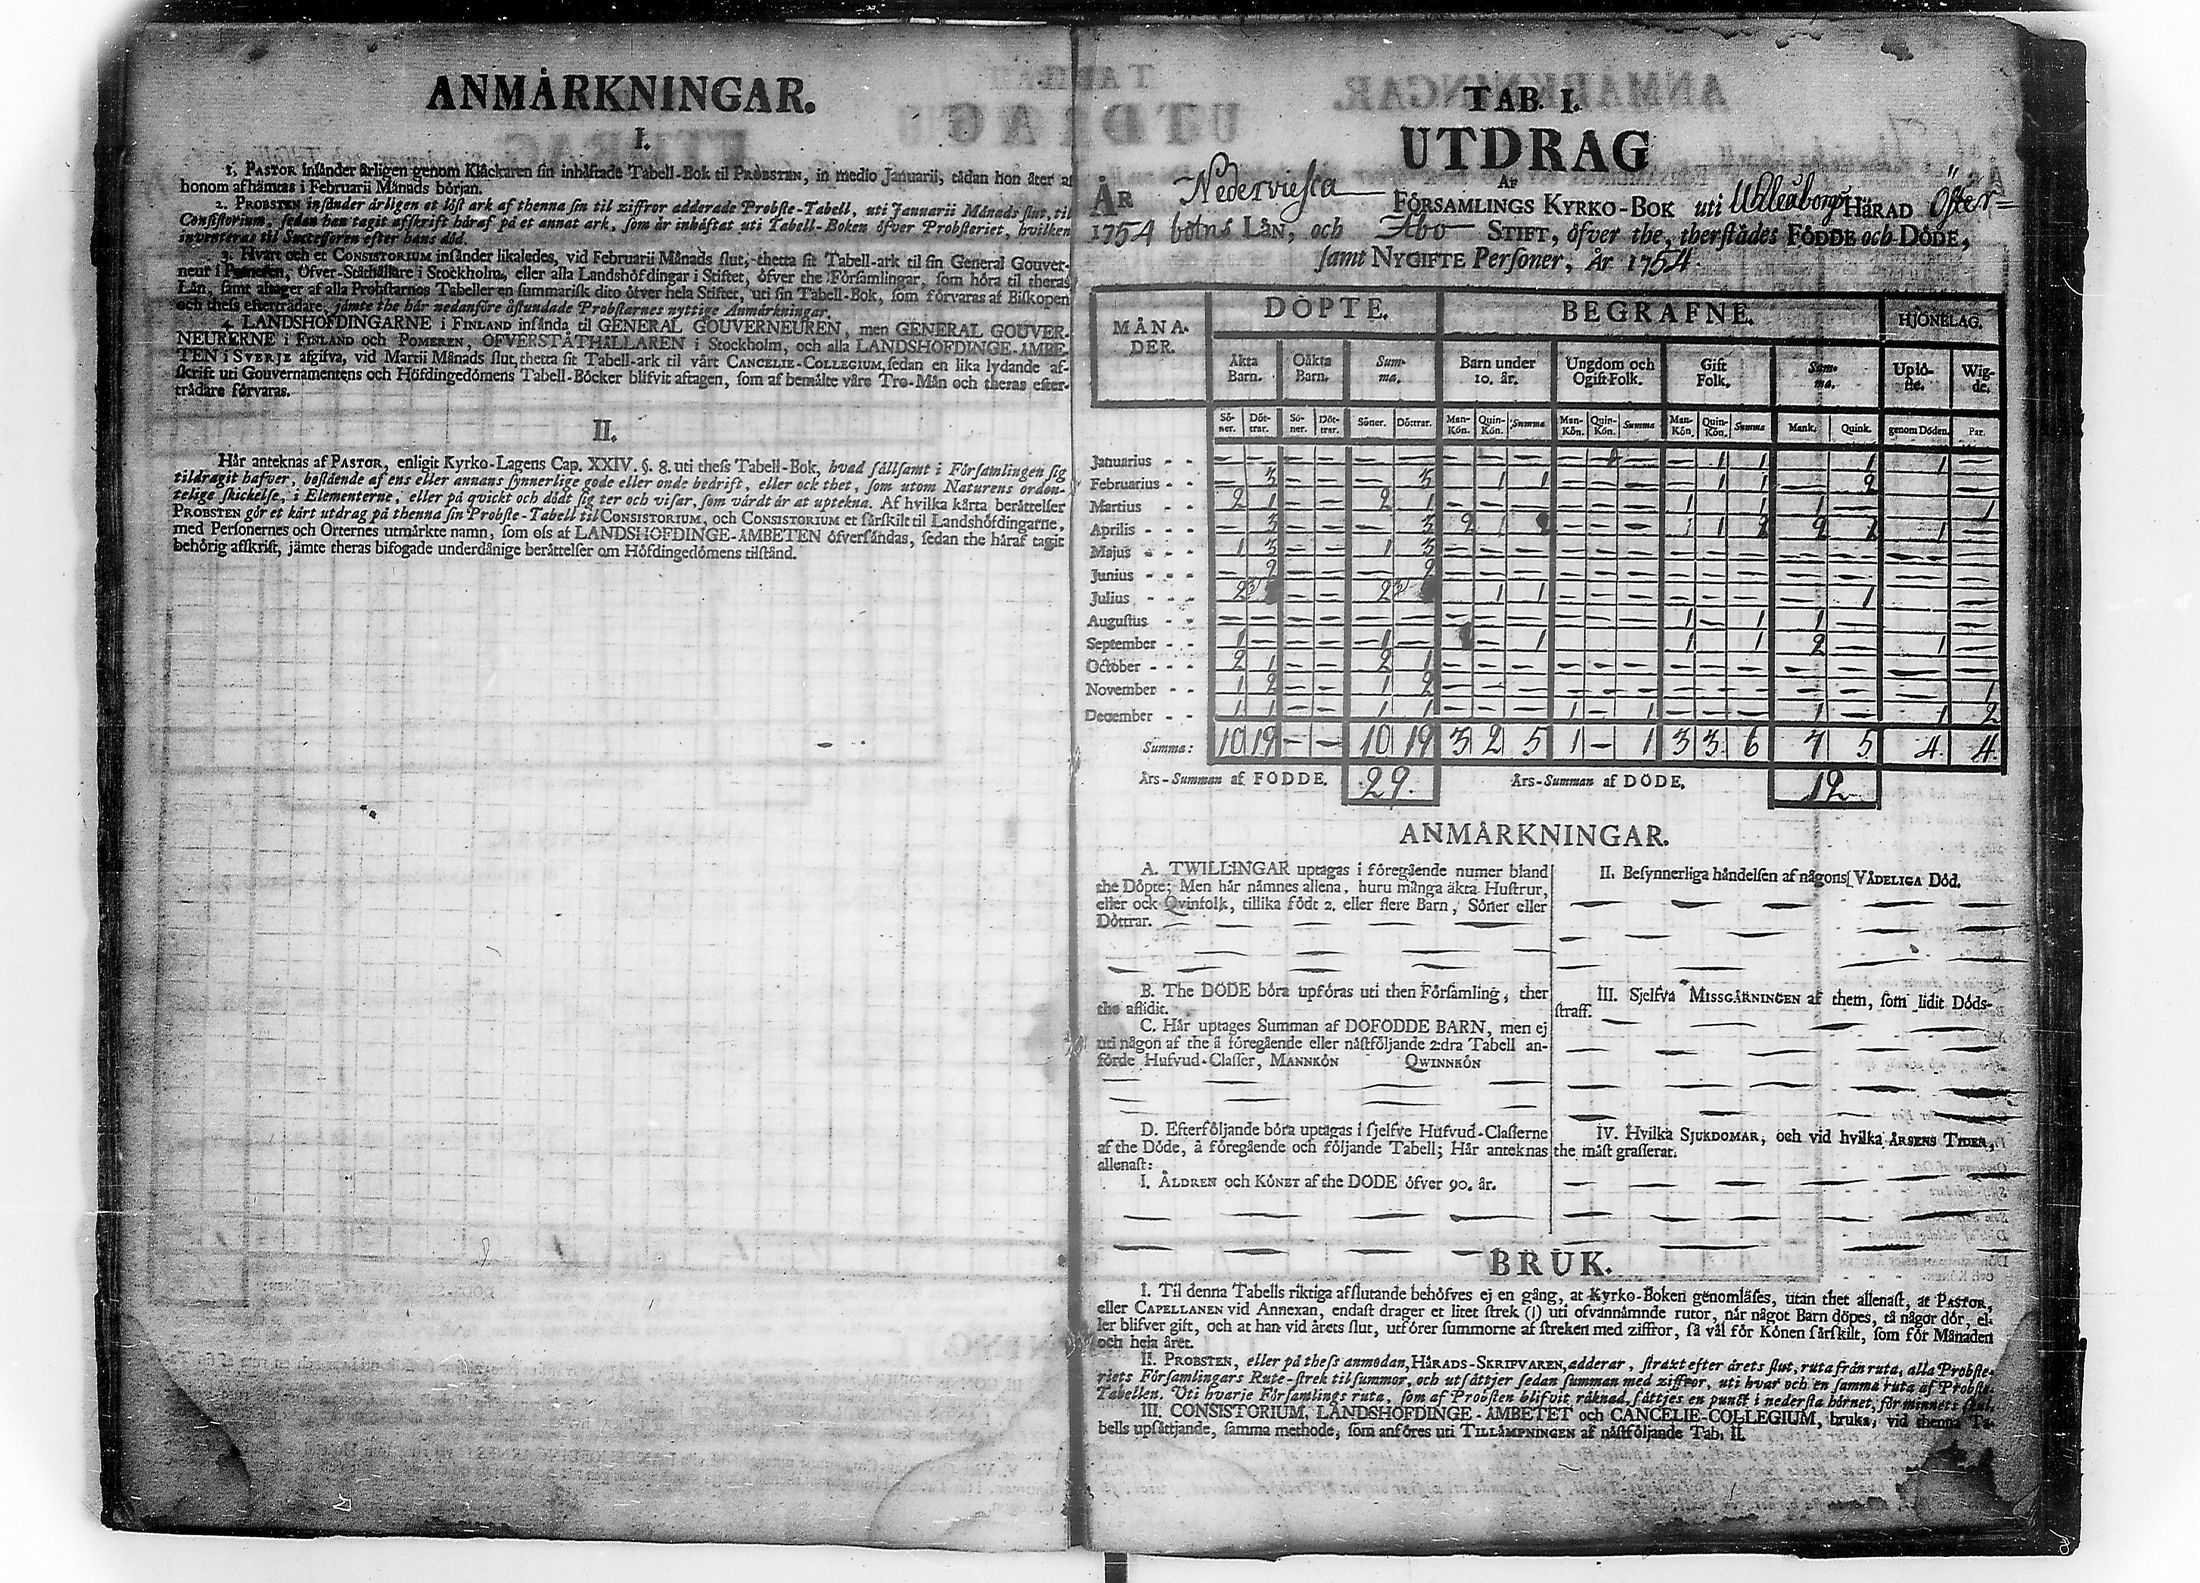 ANMÅRKNINGAR.
I.
1, PASTOR insånder årligen genom Klåckaren sin inhåftade Tabell-Bok til PROBSTEN, in medio Januarii, tådan hon åter af
honom afhåmtas i Februarii Månads början.
2. PROBSTEN insånder årligen et löst ark af thenna sin til ziffror adderade Probste-Tabell, uti Januarii Månads slut, til
Consistorium, sedan han tagit afskrift håraf på et annat ark, som år inbåftat uti Tabell-Boken öfver Probsteriet, hvilken
inventeras til Successoren efter hans död.
3. Hvart och et CONSISTORIUM insånder likaledes, vid Februarii Månads slut, thetta sit Tabell-ark til sin General Gouver-
neur i Pomeren, Öfver-Ståthållare i Stockholm, eller alla Landshöfdingar i Stiftet, öfver the Församlingar, som höra til theras
Lån, samt aftager af alla Probstarnes Tabeller en summarisk dito öfver hela Stiftet, uti sin Tabell-Bok, som förvaras af Biskopen
och thess efterträdare, jämte the hår nedanföre åstundade Probstarnes nyttige Anmårkningar.
4. LANDSHÖFDINGARNE i FINLAND insånda til GENERAL GOUVERNEUREN, men GENERAL GOUVER-
NEURERNE i FINLAND och POMEREN, ÖFVERSTÅTHÅLLAREN i Stockholm, och alla LANDSHÖFDINGE-ÅMBE-
TEN i SVERJE afgifva, vid Martii Månads slut, thetta sit Tabell-ark til vårt CANCELIE-COLLEGIUM, sedan en lika lydande af-
skrift uti Gouvernamentens och Höfdingedömens Tabell-Böcker blifvit aftagen, som af bemålte våre Tro-Mån och theras efter-
trådare förvaras.
II.
Hår anteknas af PASTOR, enligit Kyrko-Lagens Cap. XXIV. §. 8. uti thess Tabell-Bok, hvad sållsamt i Församlingen sig
tildragit hafver, bestående af ens eller annans synnerlige gode eller onde bedrift, eller ock thet, som utom Naturens orden-
telige skickelse, i Elementerne, eller på qvickt och dödt sig ter och visar, som vårdt år at uptekna. Af hvilka kårta beråttelser
PROBSTEN gör et kårt utdrag på thenna sin Probste-Tabell til CONSISTORIUM, och CONSISTORIUM et sårskilt til Landshöfdingarne,
med Personernes och Orternes utmårkte namn, som oss af LANDSHÖFDINGE-ÅMBETEN öfversåndas, sedan the håraf tagit
behörig afskrift, jämte theras bifogade underdånige beråttelser om Höfdingedömens tilstånd.
TAB. I.
UTDRAG
AF
ÅR Nederviesta FÖRSAMLINGS KYRKO-BOK uti Uhleuborgs HÄRAD Öster=
1754 botns LÄN, och Åbo STIFT, öfver the, therstådes FÖDDE och DÖDE,
samt NYGIFTE Personer, År 1754.
MÅNA-DER. DÖPTE. BEGRAFNE. HJÖNELAG.
Åkta Barn. Oåkta Barn. Summa. Barn under 10. år. Ungdom och Ogift-Folk. Gift Folk. Summa. Uplö-ste. Wig-de.
Sö-ner. Döt-trar. Sö-ner. Döt-trar. Söner. Döttrar. Man-Kön. Quin-Kön. Summa Man-Kön. Quin-Kön. Summa Man-Kön. Quin-Kön. Summa Mank. Quink. genom Döden. Par.
Januarius - - — — — — — — — — — — — — 1 1 — 1 1 —
Februarius - - — 3 — — — 3 — 1 1 — — — — 1 1 — 2 — —
Martius - - 2 1 — — 2 1 — — — — — — 1 — 1 1 — — 1
Aprilis - - — 3 — — — 3 2 1 — — — 1 1 2 2 1 —
Majus - - 1 3 — — 1 3 — — — — — — — — — — — — —
Junius - - - — 2 — — — 2 — — — — — — — — — — — — —
Julius - - - 2 3 — — 2 3 — 1 1 — — — — — — — 1 — —
Augustus - - — — — — — — — — — — — — 1 — 1 1 — — —
September - - 1 — — — 1 — — 1 — — — 1 — 1 2 — 1 —
October - - - 2 1 — — 2 1 — — — — — — — — — — — — —
November - - 1 2 — — 1 2 — — — — — — — — — — — — 1
December - - 1 1 — — 1 1 — — — 1 — 1 — — — 1 — 1 2
Summa: 10 19 — — 10 19 3 2 5 1 — 1 3 3 6 7 5 4. 4.
Års-Summan af FÖDDE. 29. Års-Summan af DÖDE. 12
ANMÅRKNINGAR.
A. TWILLINGAR uptagas i föregående numer bland
the Döpte; Men hår nåmnes allena, huru många äkta Hustrur,
eller ock Qvinfolk, tillika födt 2. eller flere Barn, Söner eller
Döttrar.
B. The DÖDE böra upföras uti then Församling, ther
the aflidit.
C. Hår uptages Summan af DÖFÖDDE BARN, men ej
uti någon af the å föregående eller nåstföljande 2:dra Tabell an-
förde Hufvud-Classer, MANNKÖN QWINNKÖN
D. Efterföljande böra uptagas i sjelfve Hufvud-Classerne
af the Döde, å föregående och följande Tabell; Hår anteknas
allenast:
I. ÅLDREN och KÖNET af the DÖDE öfver 90. år.
II. Besynnerliga håndelsen af någons VÅDELIGA Död.
III. Sjelfva MISSGÅRNINGEN af them, som lidit Döds-
straff.
IV. Hvilka SJUKDOMAR, och vid hvilka ÅRSENS TIDER,
the måst grasserat.
BRUK.
I. Til denna Tabells riktiga afslutande behöfves ej en gång, at Kyrko-Boken genomlåses, utan thet allenast, at PASTOR,
eller CAPELLANEN vid Annexan, endast drager et litet strek (|) uti ofvannåmnde rutor, når något Barn döpes, tå någor dör, el-
ler blifver gift, och at han vid årets slut, utförer summorne af streken med ziffror, så vål för Könen sårskilt, som för Månaden
och hela året.
II. PROBSTEN, eller på thess anmodan, HÅRADS-SKRIFVAREN, adderar, straxt efter årets slut, ruta från ruta, alla Probste-
riets Församlingars Rute-strek tilsummor, och utsåttjer sedan summan med ziffror, uti hvar och en samma ruta af Probste-
Tabellen. Uti hvarje Församlings ruta, som af Probsten blifvit råknad, såttjes en punct i nedersta hörnet, för minnets skul.
III. CONSISTORIUM, LANDSHÖFDINGE-ÅMBETET och CANCELIE-COLLEGIUM, bruka, vid thenna Ta-
bells upsåttjande, samma methode, som anföres uti TILLÅMPNINGEN af nåstföljande Tab. II.